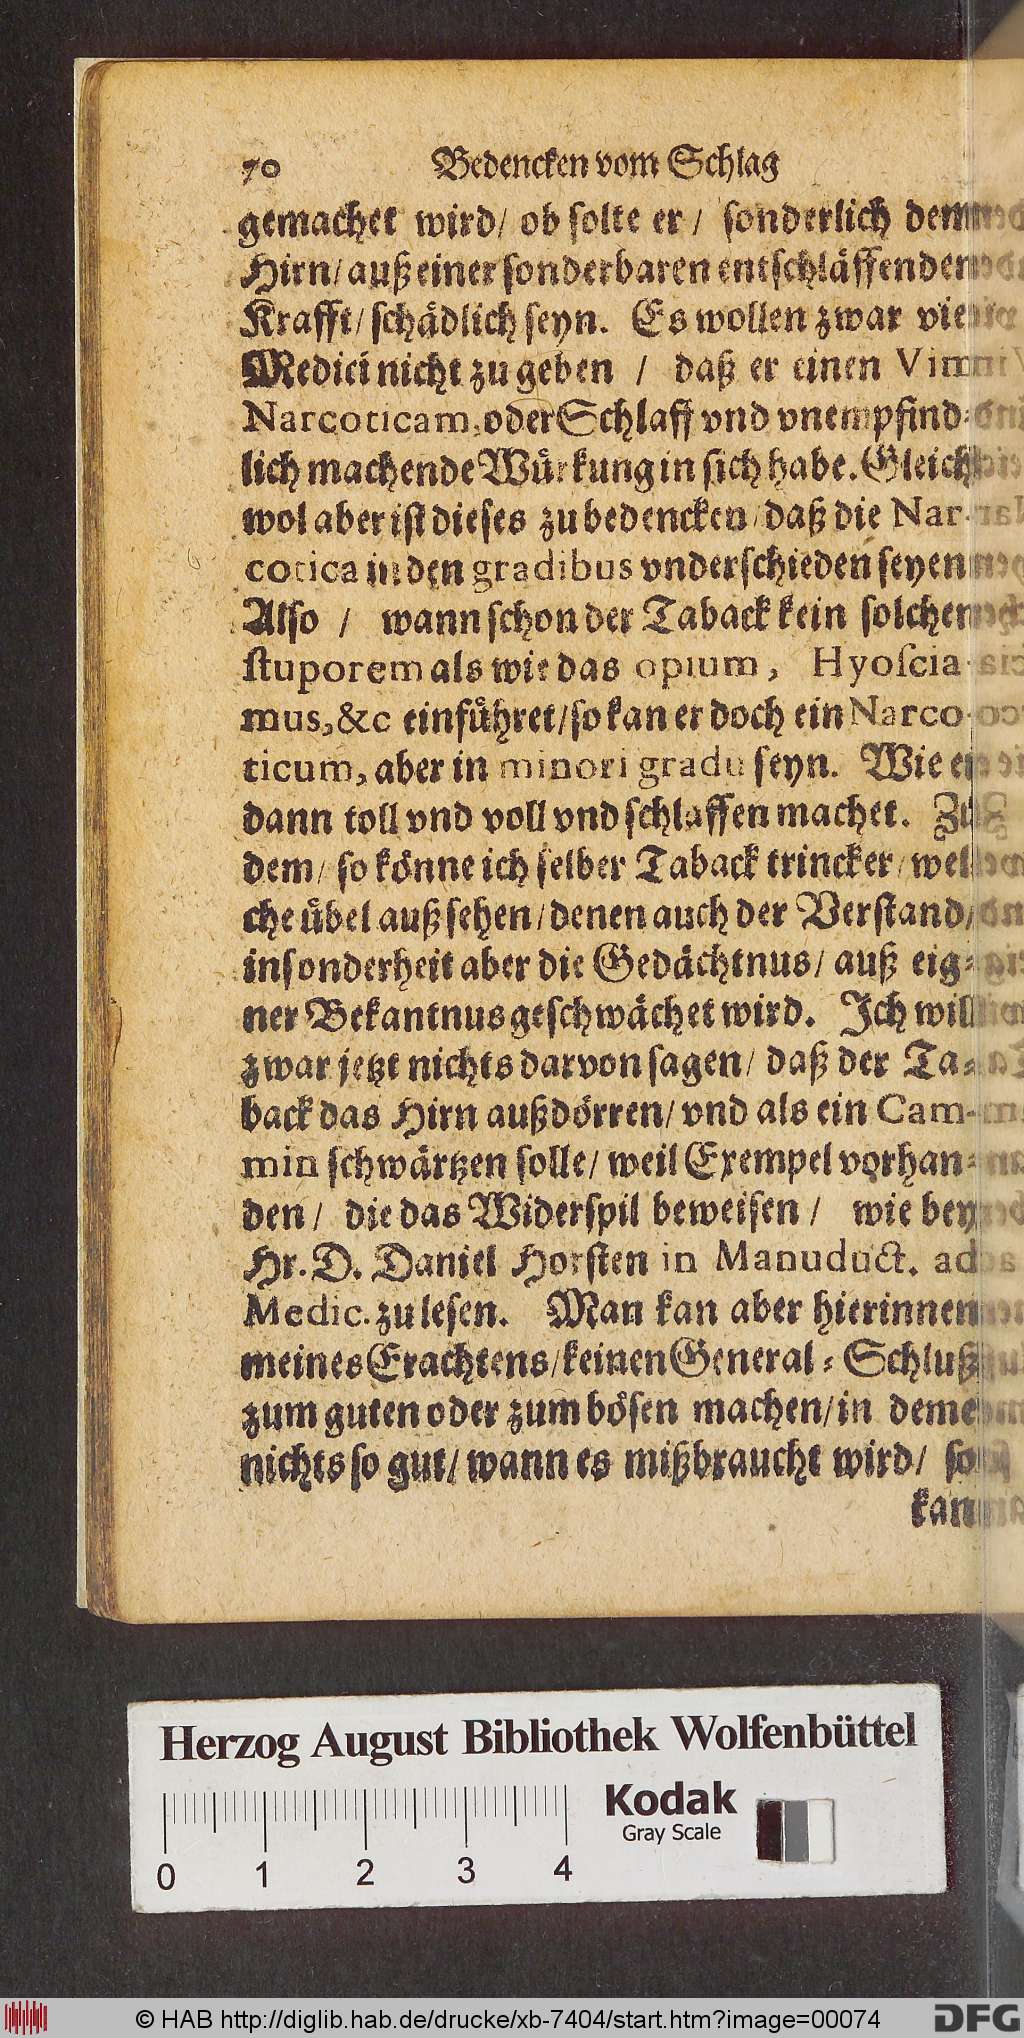 70 Bedencken vom Schlag
gemachet wird/ ob solte er/ sonderlich dem
Hirn/ auß einer sonderbaren entschläffenden
Krafft/ schädlich seyn. Es wollen zwar viel
Medici nicht zugeben / daß er einen Vim
Narcoticam, oder Schlaff vnd vnempfind⸗
lich machende Würkung in sich habe. Gleich
wol aber ist dieses zubedencken/ daß die Nar-
cotica in den gradibus vnderschieden seyen
Also / wann schon der Taback kein solchen
stuporem als wie das opium, Hyoscia-
mus, &c einführet/ so kan er doch ein Narco-
ticum, aber in minori gradu seyn. Wie er
dann toll vnd voll vnd schlaffen machet. Zu
dem/ so könne ich selber Taback trincker/ wel
che übel auß sehen/ denen auch der Verstand/
insonderheit aber die Gedächtnus/ auß eig⸗
ner Bekantnus geschwächet wird. Ich will
zwar jetzt nichts darvon sagen/ daß der Ta⸗
back das Hirn außdörren/ vnd als ein Cam-
min schwärtzen solle/ weil Exempel vorhan⸗
den/ die das Widerspil beweisen/ wie bey
Hr. D. Daniel Horsten in Manuduct. ad
Medic. zu lesen. Man kan aber hierinnen
meines Erachtens/ keinen General⸗Schluß
zum guten oder zum bösen machen/ in deme
nichts so gut/ wann es mißbraucht wird/ so
kan
Herzog August Bibliothek Wolfenbüttel
Kodak
Gray Scale
0 1 2 3 4
© HAB http://diglib.hab.de/drucke/xb-7404/start.htm?image=00074
DFG